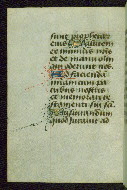 sunt prophetar
eius Salutem
ex inimicis nris
et de manu oim
qui oderunt nos
Ad faciendam
miam cum pa
tribus nostris
et memorari tes
tamenti sui sci
Iusiurandum
quod iurauit ad